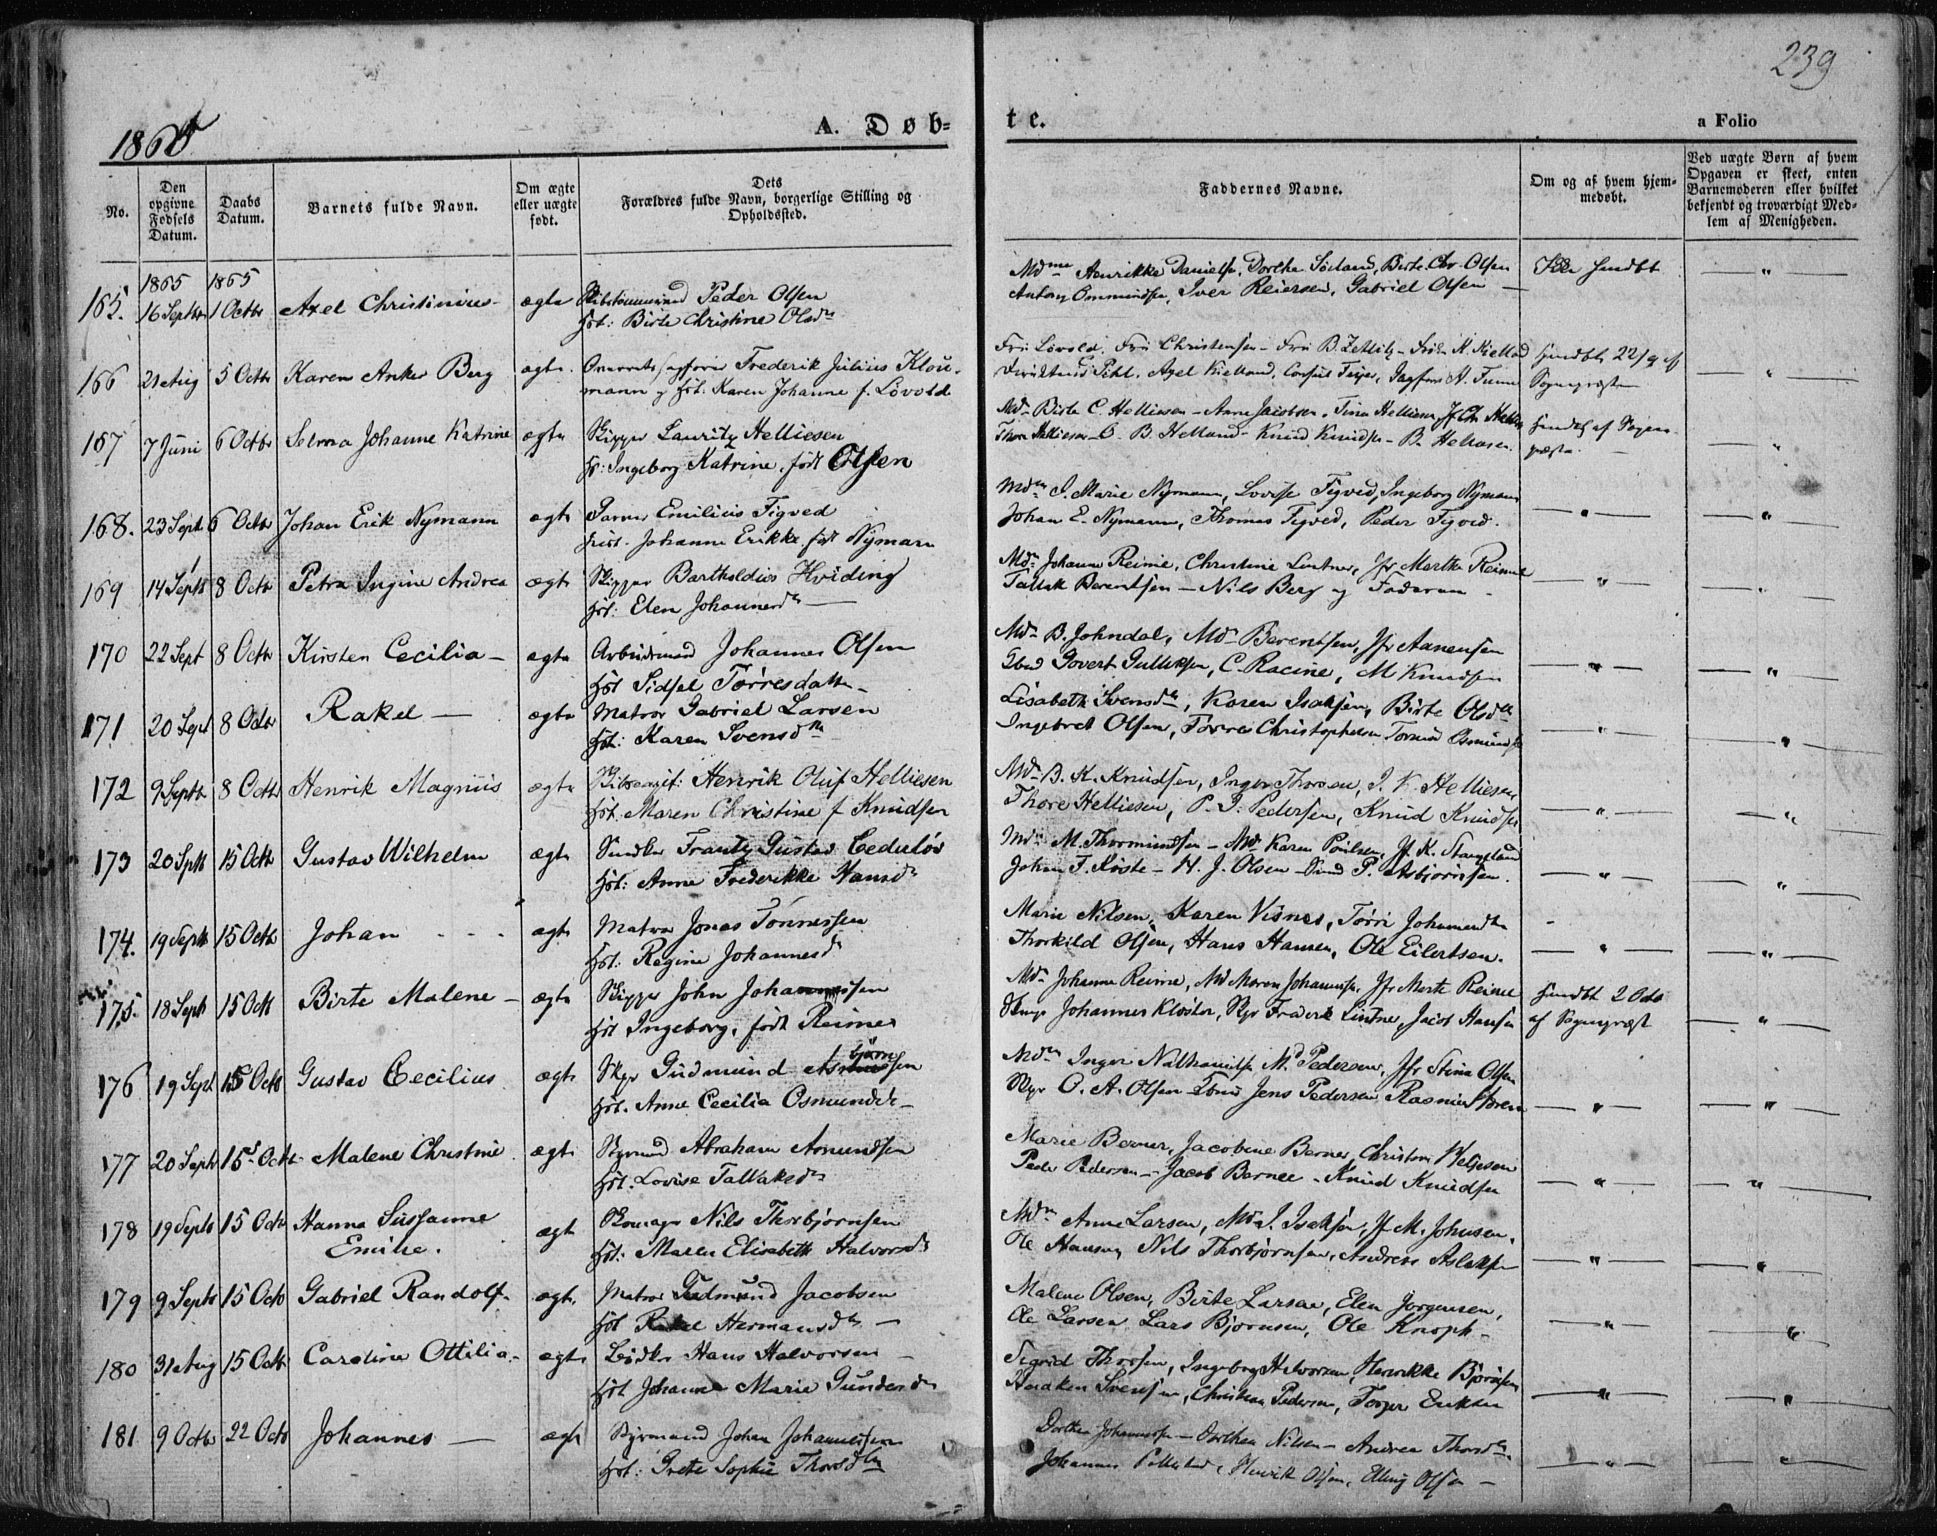 239
1865
A. Døb-
te.
a Folio
No.
Den opgivne Fødsels Datum.
Daabs Datum.
Barnets fulde Navn.
Om ægte eller uægte født.
Dets Forældres fulde Navn, borgerlige Stilling og Opholdssted.
Faddernes Navne.
Om og af hvem hjemmedøbt.
Ved uægte Børn af hvem Opgaven er skeet, enten Barnemoderen eller hvilket bekjendt og troværdigt Medlem af Menigheden.
1865 1865
165. 16 Septbr 1 Octbr Axel Christinius ægte Peder Olsen
Hst: Birte Christine Olsdtr
Mdme Henrikke Danielsen, Dorthea Søiland, Birte Chr. Olsen
Antony Ommundsen, Iver Reiersen, Gabriel Olsen
166 21 Aug 5 Octbr Karen Anker Berg ægte Frederik Julius Klou-
mann og Hst: Karen Johanne f. Løvold
Fru Løvold. Fru Christensen - Fru B. Zetlitz - Frøk. M. Kielland
Axel Kielland, Consul
Hjemdbt 22/9 af
Sognepræst
167 7 Juni 6 Octbr Selma Johanne Katrine ægte Skipper Lauritz Helliesen
H: Ingeborg Katrine, født Olsen
Md Birte C. Helliesen - Anne Jacobsen, Tina Helliesen
Thore Helliesen - B. Helland - Knud Knudsen - B. Helliesen
Hjemdbt af Sogne-
præst
168. 23 Sept 6 Octbr Johan Erik Nymann ægte Emilius Tigved
Johanne Erikke født Nymann
Mdm J. Marie Nymann, Lovise Tigved, Ingeborg Nymann
Johan E. Nymann, Thomas Tigved, Peder Tigved.
169 14 Septb 8 Octb Petra Ingine Andrea ægte Skipper Bartholdius Hviding
Hst: Elen Johannesdtr
Md Johanne Reime, Christine Lintner, Jfr Marthe Reime
Tallak Berentsen - Nils Berg og Faderen
170 22 Sept 8 Octb Kirsten Cecilia ægte Arbeidsmand Johannes Olsen
Hst Sidsel Tørresdatter
Md B. Johndal, Md Berentsen, Jfr Aanensen
Govert Gulliksen, C. Racine, M Knudsen
171 20 Sept 8 Octbr Rakel ægte Matros Gabriel Larsen
Hst: Karen Svensdtr
Lisabeth Svensdtr, Karen Isaksen, Birte Olsdtr
Ingebret Olsen, Tørres Christophersen
172 9 Septb 8 Octb Henrik Magnus ægte Henrik Oluf Helliesen
Hst. Maren Christine f Knudsen
Md B. K. Knudsen, Inger Thorsen, J. K. Helliesen
Thore Helliesen, P. J. Pedersen, Knud Knudsen
173 20 Septb 15 Octb Gustav Wilhelm ægte Snedker Frantz Gustav Cederløv
Hst: Anne Frederikke Hansdtr
Md M. Thormundsen - Md Karen Poulsen, Jf K. Stangeland
Johan F. Røste - H. J. Olsen - P. Asbjørnsen.
174. 19 Septb 15 Octb Johan ægte Matros Jonas Tønnessen
Hst: Regine Johannesdtr
Marie Nilsen, Karen Visnes, Tørri Johannesdtr
Thorkild Olsen, Hans Hansen, Ole Eilertsen.
175. 18 Septb 15 Octb Birte Malene ægte Skipper John Johannessen
Hst Ingeborg, født Reimer
Md Johanne Reime, Md Maren Johannesen Jfr Marte Reime
Johannes Kloster, Skpr Frederik Lintner, Jacob Hansen
Hjemdbt 2 Octb
af Sognepræst
176 19 Sept 15 Octb Gustav Cecilius ægte Skpr Gudmund Asbjørnsen
Hst. Anne Cecilia Osmundsdtr
Mdm Inger Nathanielsen Md Pedersen, Jfr Stina Olsen
Skpr O. A. Olsen Jens Pedersen Rasmus Sørensen
177 20 Septb 15 Octb Malene Christine ægte Styrmd Abraham Asmundsen
Hst: Lovise Tallaksdtr
Marie Berner, Jacobine Berner, Christen Heljesen
Peder Pedersen - Jacob Berner - Knud Knudsen
178 19 Septb 15 Octb Hanna Susanne ægte Skomager Nils Thorbjørnsen
Emilie. Hst: Maren Elisabeth Halvorsdtr
Mdm Anne Larsen, Md J. Isaksen, Jf M. Johnsen.
Ole Hansen, Nils Thorbjørnsen, Andreas Aslaksen
179 9 Septb 15 Octb Gabriel Randolf ægte Matros Gudmund Jacobsen
Hst Rakel Hermansdtr
Malene Olsen, Birte Larsen, Elen Jørgensen,
Ole Larsen Lars Bjørnsen, Ole Knoph
180 31 Aug 15 Octb Caroline Ottilia ægte Bødker Hans Halvorsen
Hst Johanne Marie Gundersdtr
Sigrid Thorsen, Ingeborg Halvorsen, Henrikke Bjørnsen
Haaken Svensen, Christian Pedersen, Torger Eriksen
181 9 Octb 22 Octb Johannes ægte Styrmand Johan Johannessen
Hst: Grete Sophie Thorsdtr
Dorthea Johannesen - Dorthea Nilsen - Andrea Thorsdtr
Johannes Henrik Olsen, Elling Olsen